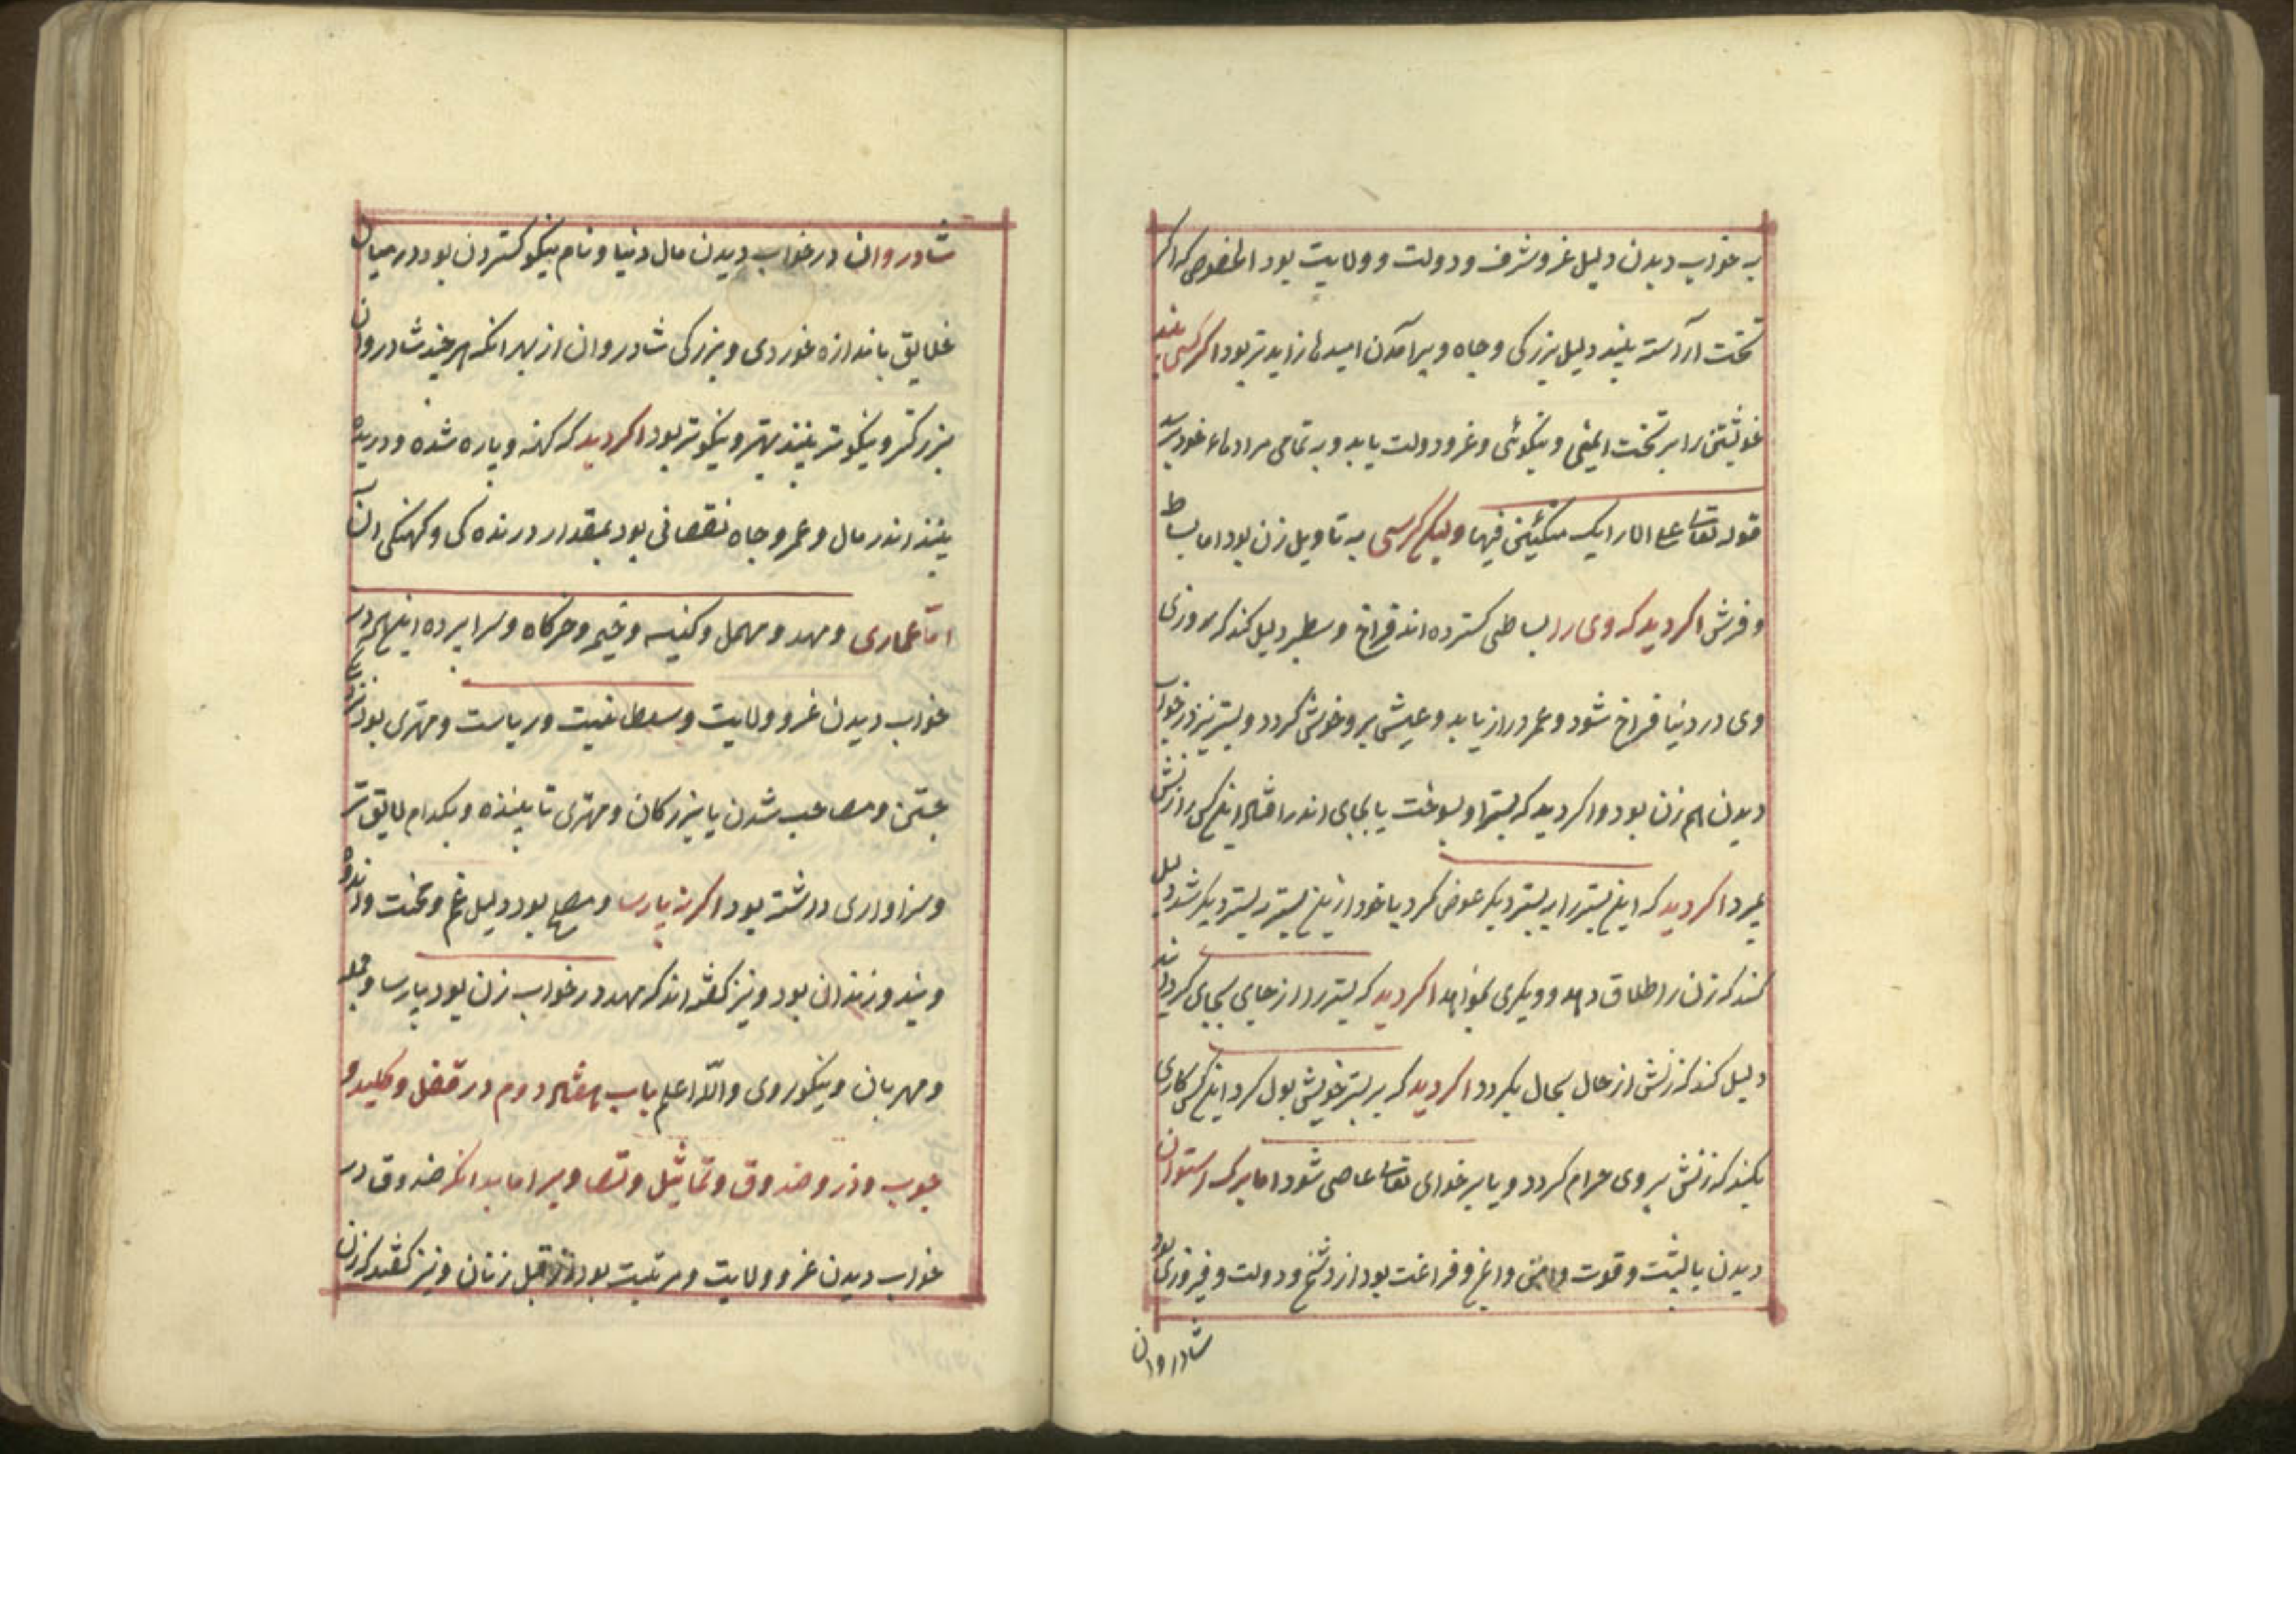 به خواب دیدن دلیل غز و شرف و دولت و ولایت بود الخصوص که اکر
تخت آراسته بیند دلیل بزرکی و جاه و برآمدن امیدها زایدتر بود اکر کسی بیند
خویشتن را بر تخت ایمنی و نیکوئی و غز و دولت یابد و به تمامی مرادهاء خود برسد
قوله تعالی علی الارایک متکئین فیها ولیکن کرسی به تاویل زن بود اما بساط
و فرش اکر دید که وی را بساطی کسترده اند فراخ و سطبر دلیل کند که روزی
وی در دنیا فراخ شود و عمر دراز یابد و عیش برو خوش کردد و بستر نیز در خواب
دیدن هم زن بود و اکر دید که بستر او بسوخت یا بجای اندر افتاد اینکس را زنش
بمیرد اکر دید که این بستر را به بستر دیکر عوض کرد یا خود ازین بستر به بستر دیکر شد دلیل
کند که زن را طلاق دهد و دیکری بخواهد اکر دید که بستر را از جایی بجای کردانند
دلیل کند که زنش از حال بحال بکردد اکر دید که بر بستر خویش بول کرد اینکس کاری
بکند که زنش بر وی حرام کردد و یا بر خدای تعالی عاصی شود اما برک استوان
دیدن با پشت و قوت و ایمنی و فراغت بود از دشمن و دولت و فیروزی بود
شادروان
شادروان در خواب دیدن مال دنیا و نام نیکو کستردن بود در میان
خلایق باندازه خوردی و بزرکی شادروان از بهر انکه هر چند شادروان
بزرکتر و نیکوتر بیند بهتر و نیکوتر بود اکر دید که کهنه و پاره شده و دریده
بیند اندر مال و عمر و جاه نقصانی بود بمقدار درنده کی و کهنکی آن
اما عماری و مهد و مهمل و کنیسه و خیمه و خرکاه و سرا پرده اینهمه در
خواب دیدن غز و ولایت و سلطانیت و ریاست و مهتری بود
جستن و مصاحب شدن با بزرکان و مهتری تا بیننده و بکدام لایق تر
و سزاواری داشته بود اکر نه پارسا و مصلح بود دلیل غم و محنت و اندوه
و بند و زندان بود و نیز کفته اند که مهد در خواب زن بود پارسا و
و مهربان و نیکو روی والله اعلم باب هفتاد دوم در قفل و کلید و
چوب و در و صندوق و تماثیل و تصاویر اما بدانکه صندوق در
خواب دیدن غز و ولایت و مرتبت بود از قبل زنان و نیز کفته اند که زن